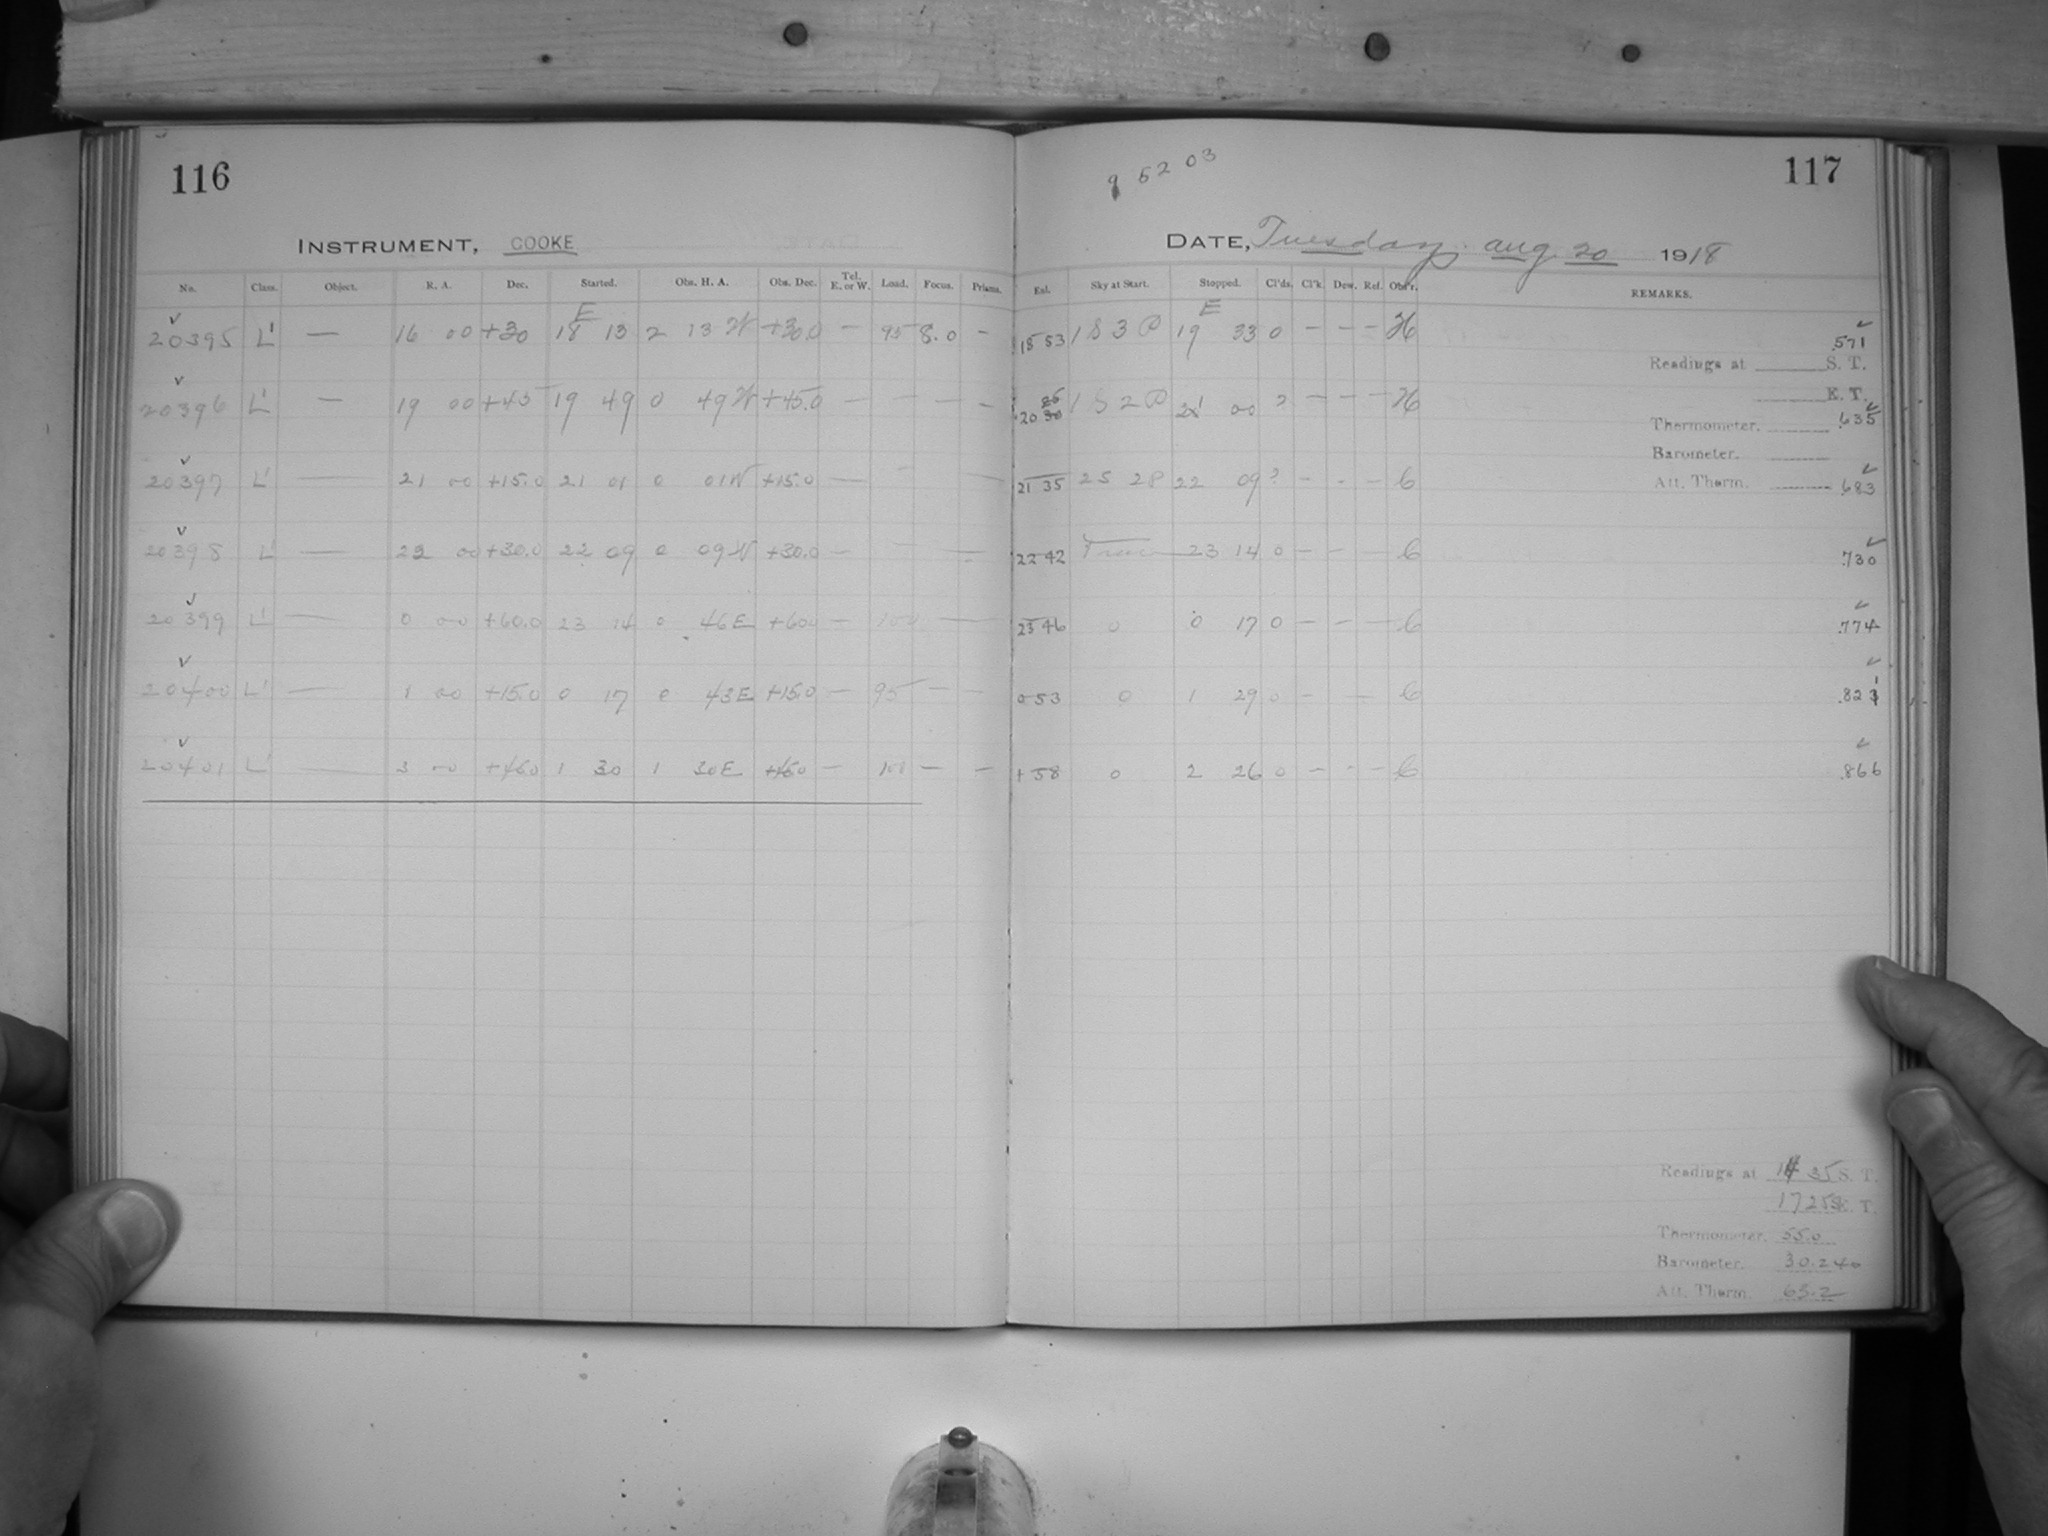 116
INSTRUMENT, COOKE
No. Class. Object. R. A. Dec. Started. Obs. H. A. Obs. Dec. Tel. E. or W. Load. Focus. Prisms.
E
20395 L' — 16 00 +30 18 13 2 13 W +30.0 — 95 8.0 —
20396 L' — 19 00 +45 19 49 0 49 W +45.0 — — — —
20397 L' — 21 00 +15.0 21 01 0 01 W +15.0 — — —
20398 L' — 22 00 +30.0 22 09 0 09 W +30.0 — — —
20399 L' — 0 00 +60.0 23 14 0 46 E +60.0 — 100 — —
20400 L' — 1 00 +15.0 0 17 0 43 E +15.0 — 95 — —
20401 L' — 3 00 +45.0 1 30 1 30 E +45.0 — 100 — —
117
9 52 03
DATE, Tuesday. Aug 20 1918
Exl. Sky at Start. Stopped. Cl'ds. Cl'k. Dew. Ref. Obs'r. REMARKS.
E
18 53 1 S 3 P 19 33 0 — — — H .571
Readings at S. T.
E. T.
20 25 1 S 2 P 21 00 ? — — — H .635
Thermometer.
Barometer.
Att. Therm.
21 35 2S 2P 22 09 ? — — — C .683
22 42 Trace 23 14 0 — — — C .730
23 46 0 0 17 0 — — — C .774
0 53 0 1 29 0 — — C .821
1 58 0 2 26 0 — — — C .866
Readings at 14 35 S. T.
17 25 E. T.
Thermometer. 55.0
Barometer. 30.240
Att. Therm. 63.2